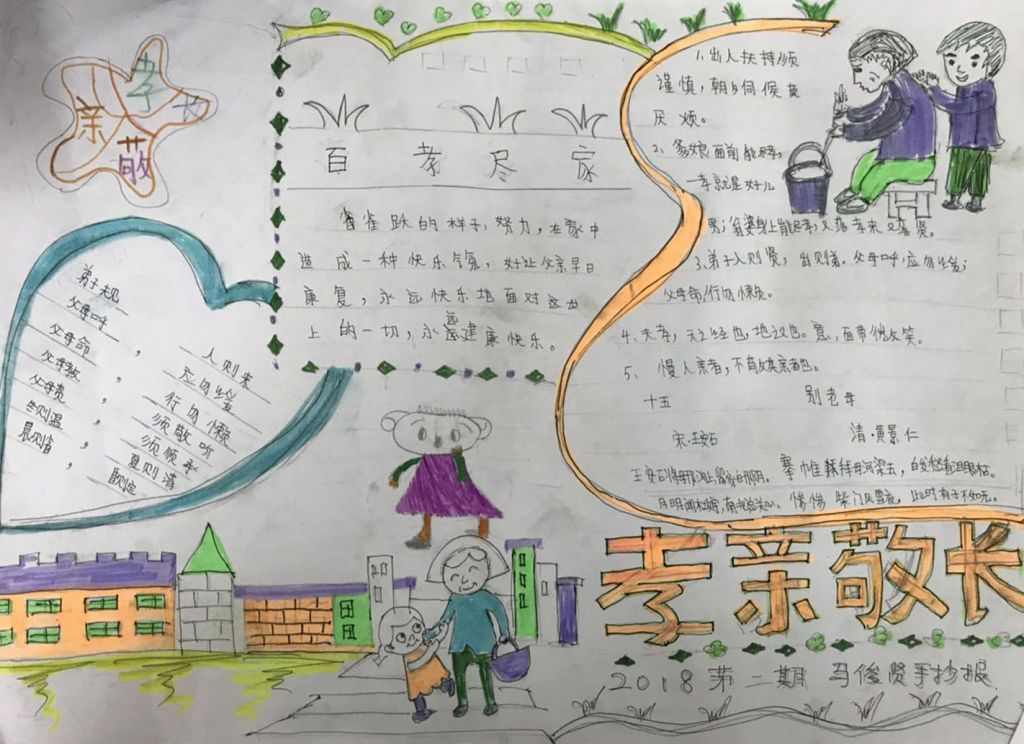 孝
亲
敬
长
百孝尽家
雀跃的样子,努力,在家中
造成一种快乐气氛,好让父亲早日
康复,永远快乐地面对这世
上的一切,永远健康快乐。
弟子规
父母呼,入则孝
父母命,应勿缓
父母教,行勿懒
父母责,须敬听
冬则温,须顺承
晨则省,夏则清
昏则定
1、出入扶持须
谨慎,朝夕伺候莫
厌烦。
2、爹娘面前能尽孝,
一孝就是好儿
男;翁婆身上能尽孝,又落孝来又落贤。
3、弟子入则孝,出则弟。父母呼,应勿缓;
父母命,行勿懒。
4、夫孝,天之经也,地之义也。
面带微笑。
5、慢人亲者,不敬其亲者也。
十五
别老母
宋·王安石
清·黄景仁
搴帷拜母河梁去,白发愁看泪眼枯。
惨惨柴门风雪夜,此时有子不如无。
孝亲敬长
2018第二期 马俊贤手抄报